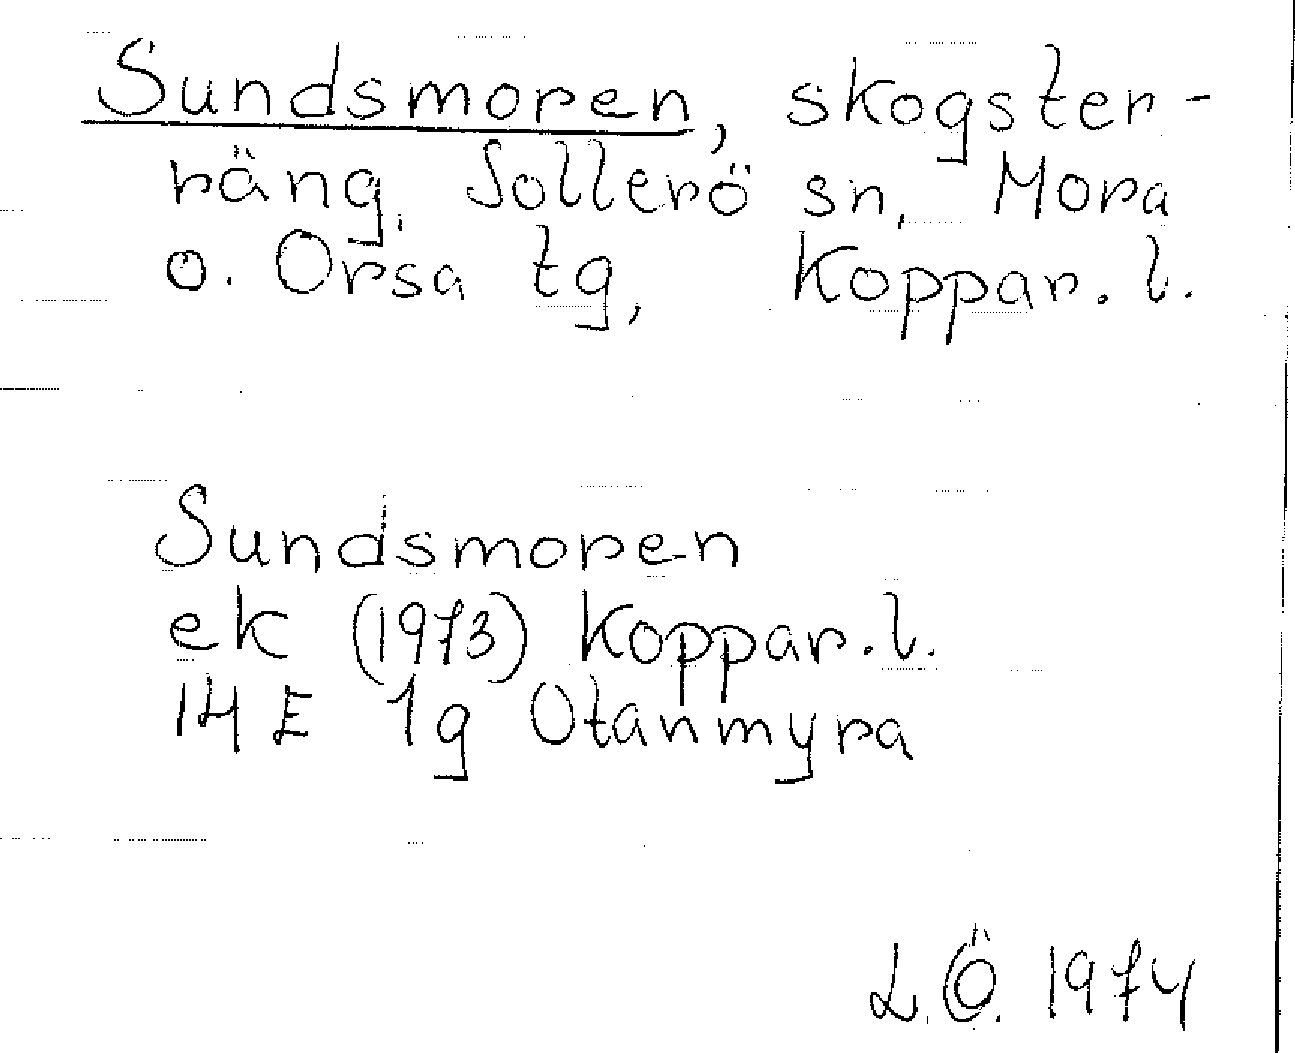 Sundsmoren, skogster-
räng, Sollerö sn, Mora
o. Orsa tg, Koppar. l.
Sundsmoren
ek (1973) Koppar. l.
14 E 1g Utanmyra
L.Ö. 1974